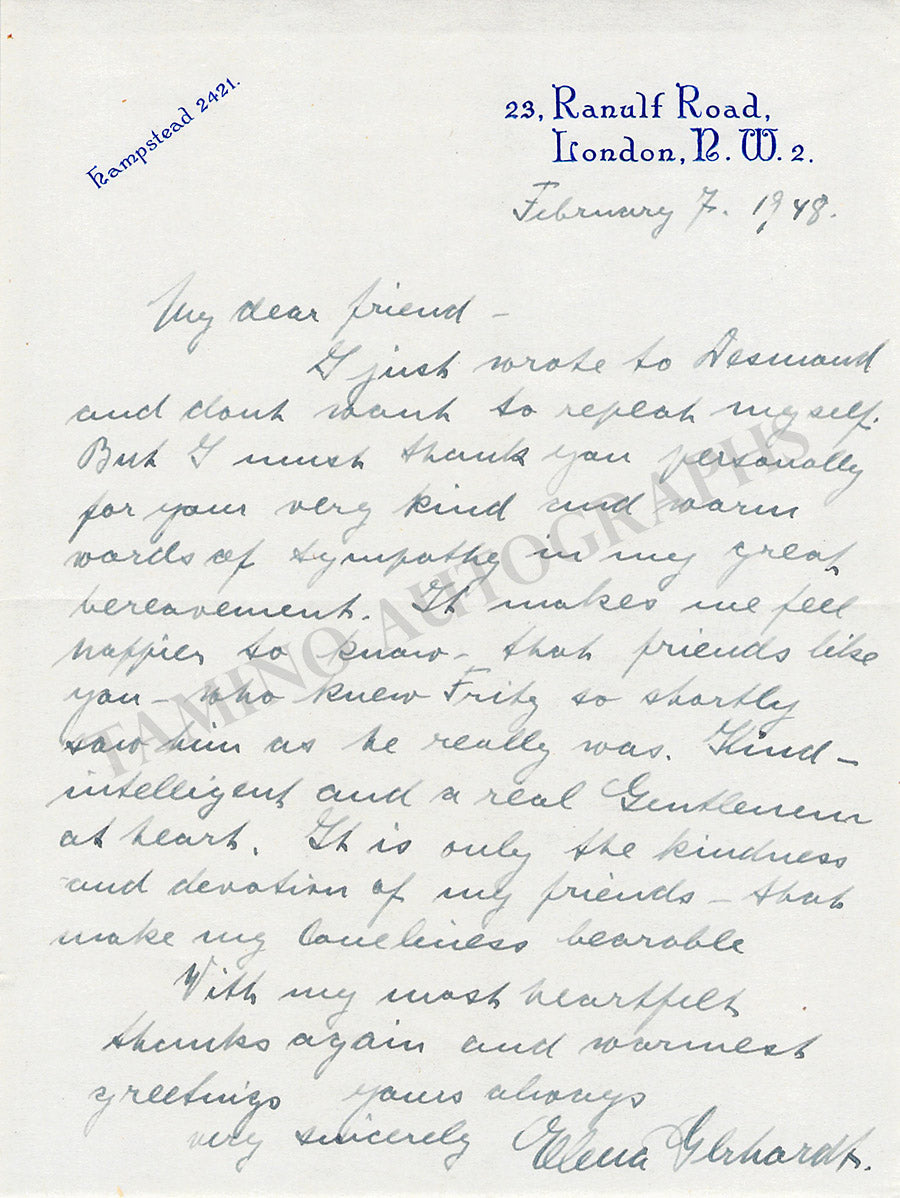 Hampstead 2421.
23, Ranulf Road,
London, N. W. 2.
February 7. 1948.
My dear friend –
I just wrote to Desmond
and dont want to repeat myself.
But I must thank you personally
for your very kind and warm
words of sympathy in my great
bereavement. It makes me feel
happier to know – that friends like
you – who knew Fritz so shortly
saw him as he really was. Kind –
intelligent and a real Gentlemen
at heart. It is only the kindness
and devotion of my friends – that
make my loneliness bearable
With my most heartfelt
thanks again and warmest
greetings yours always
very sincerely Elena Gerhardt.
TAMINO AUTOGRAPHS